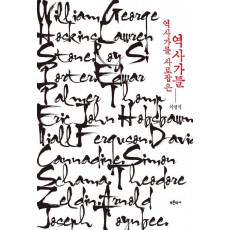 William George
Hoskins Lawren
Stone Roy S.
Porter Edwar
Palmer Thomp
Eric John Hobsbawm
Niall Ferguson Davi
Cannadine Simon
Schama Theodore
Zeldin Arnold
Joseph Toynbee.
역사가를 사로잡은
역사가들
이영석
푸른역사